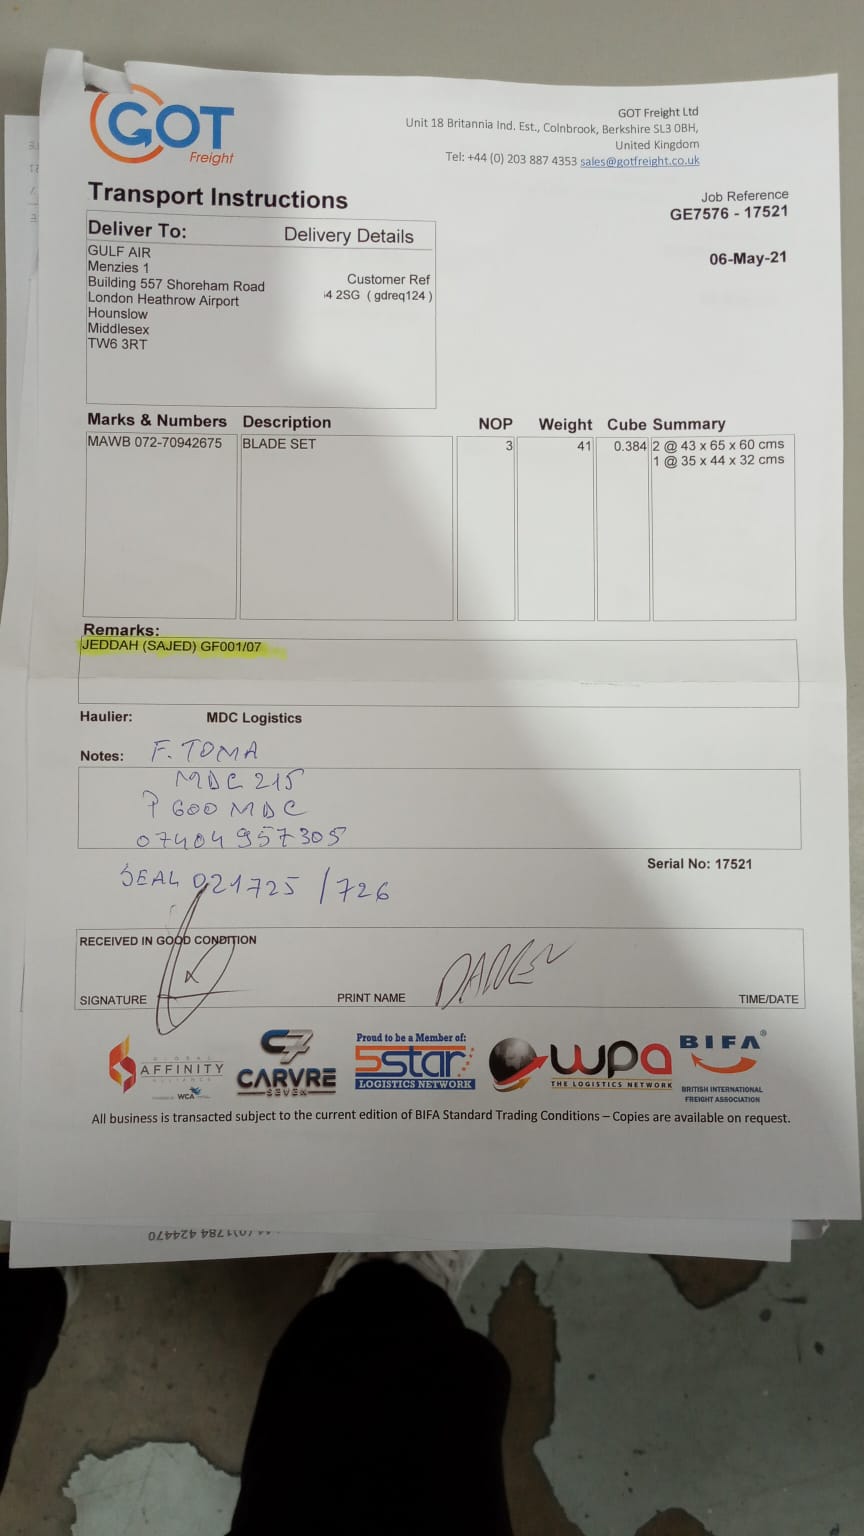 GOT
Freight
GOT Freight Ltd
Unit 18 Britannia Ind. Est., Colnbrook, Berkshire SL3 0BH,
United Kingdom
Tel: +44 (0) 203 887 4353 sales@gotfreight.co.uk
Transport Instructions
Job Reference
GE7576 - 17521
06-May-21
Deliver To:
Delivery Details
GULF AIR
Menzies 1
Building 557 Shoreham Road
London Heathrow Airport
Hounslow
Middlesex
TW6 3RT
Customer Ref
4 2SG ( gdreq124 )
Marks & Numbers Description NOP Weight Cube Summary
MAWB 072-70942675 BLADE SET 3 41 0.384 2 @ 43 x 65 x 60 cms
1 @ 35 x 44 x 32 cms
Remarks:
JEDDAH (SAJED) GF001/07
Haulier: MDC Logistics
Notes: F. TOMA
MDC 215
P 600 MDC
07404 957305
Serial No: 17521
SEAL 021725 / 726
RECEIVED IN GOOD CONDITION
SIGNATURE
PRINT NAME
TIME/DATE
GLOBAL
AFFINITY
ALLIANCE
WCA
C7
CARVRE
SEVEN
Proud to be a Member of:
5star
LOGISTICS NETWORK
wpa
THE LOGISTICS NETWORK
BIFA®
BRITISH INTERNATIONAL
FREIGHT ASSOCIATION
All business is transacted subject to the current edition of BIFA Standard Trading Conditions – Copies are available on request.
784 424470